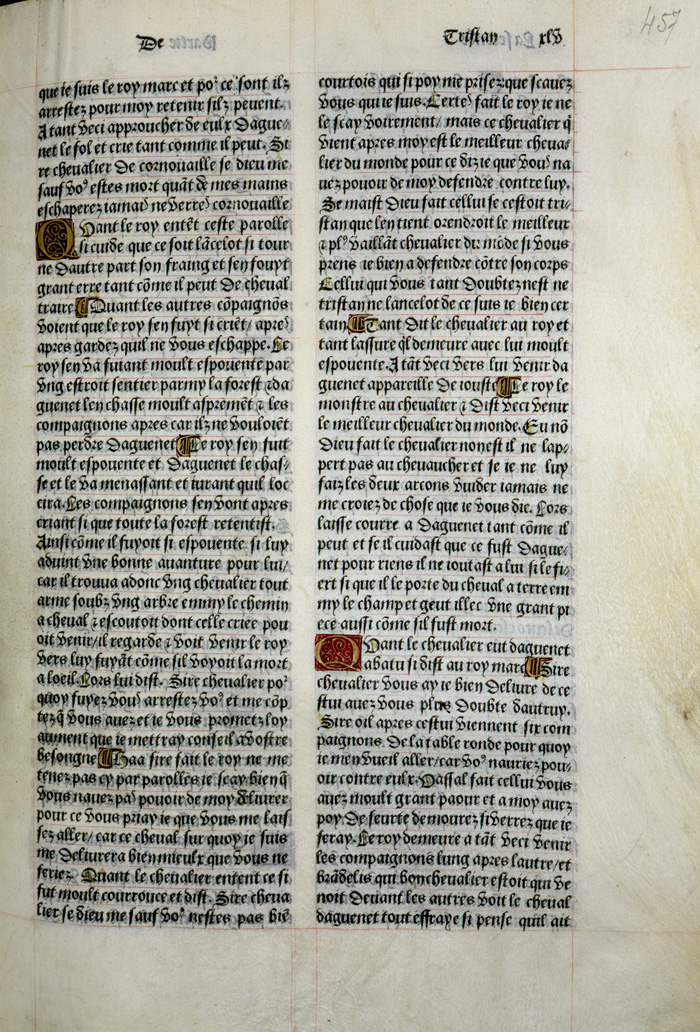 De
Tristan xlv
457
que ie suis le roy marc et po² ce sont ilz
arrestez pour moy retenir silz peuent.
A tant veci approucher de eulx dague/
net le fol et crie tant comme il peut. Si
re chevalier de cornouaille se dieu me
sauf vo⁹ estes mort quāt de mes mains
eschaperez iamais ne verres cornouaille
Quant le roy entēt ceste parolle
si cuide que ce soit lācelot si tour
ne dautre part son fraing et sen fouyt
grant erre tant cōme il peut de cheval
traire. Quant les autres cōpaignōs
voient que le roy sen fuyt si criēt/ apres
apres gardez quil ne vous eschappe. Le
roy sen va fuiant moult espouente par
vng estroit sentier parmy la forest ⁊ da
guenet len chasse moult asprement ⁊ les
compaignons apres car ilz ne vouloiēt
pas perdre daguenet Le roy sen fuit
moult espouente et daguenet le chas/
se et le va menassant et iurant quil loc
cira. Les compaignons sen vont apres
criant si que toute la forest retentist.
Ainsi cōme il fuyoit si espouente si luy
aduint vne bonne auanture pour lui/
car il trouua adonc vng chevalier tout
arme soubz vng arbre emmy le chemin
a cheval ⁊ escoutoit dont celle criee pou
oit venir/ il regarde ⁊ voit venir le roy
vers luy fuyāt cōme sil voyoit la mort
a loeil. Lors lui dist. Sire chevalier po²
quoy fuyez vous arrestez vo⁹ et me cōp
tez q̄ vous auez et ie vous prometz loy
aument que ie mettray conseil a vostre
besongne Haa sire fait le roy ne me
tenez pas cy par parolles ie scay bien q̄
vous nauez pas pouoir de moy deliurer
pour ce vous priay ie que vous me lais
sez aller/ car ce cheval sur quoy ie suis
me deliurera bien mieulx que vous ne
feriez. Quant le chevalier entent ce si
fut moult courrouce et dist. Sire cheua
lier se dieu me sauf vo⁹ nestes pas biē
courtois qui si poy me prisez: que scauez
vous qui ie suis. Certes fait le roy ie ne
le scay voirement/ mais ce chevalier q̄
vient apres moy est le meilleur cheua/
lier du monde pour ce diz ie que vous na
uez pouoir de moy defendre contre luy.
Se maist dieu fait cellui se cestoit tri/
stan que len tient orendroit le meilleur
⁊ pl⁹ vaillāt chevalier du mōde si vous
prens ie bien a defendre cōtre son corps
Cellui qui vous tant doubtez nest ne
tristan ne lancelot de ce suis ie bien cer
tain Tant dit le chevalier au roy et
tant lassure q̄l demeure avec lui moult
espouente. A tāt veci vers lui venir da
guenet appareille de iouste Le roy le
monstre au chevalier ⁊ dist veci venir
le meilleur chevalier du monde. Eu nō
dieu fait le chevalier non est il ne lap/
pert pas au cheuaucher et se ie ne luy
faiz les deux arcons vuider iamais ne
me croiez de chose que ie vous die. Lors
laisse courre a daguenet tant cōme il
peut et se il cuidast que ce fust dague/
net pour riens il ne ioutast a lui si le fi/
ert si que il le porte du cheval a terre em
my le champ et geut illec vne grant pi
ece aussi cōme sil fust mort.
Quant le chevalier eut daguenet
abatu si dist au roy marc Sire
chevalier vous ay ie bien deliure de ce
stui avez plus doubte dautruy.
Sire oil apres cestui viennent six com
paignons de la table ronde pour quoy
ie men vueil aller/ car vo⁹ nauriez pou/
oir contre eulx. Vassal fait cellui vous
auez moult grant paour et a moy auez
poy de seurte demourez si verrez que ie
feray. Le roy demeure a tāt veci venir
les compaignons lung apres lautre/ et
brādelis qui bon chevalier estoit qui ve
noit deuant les autres voit le cheval
daguenet tout effraye si pense quil ait